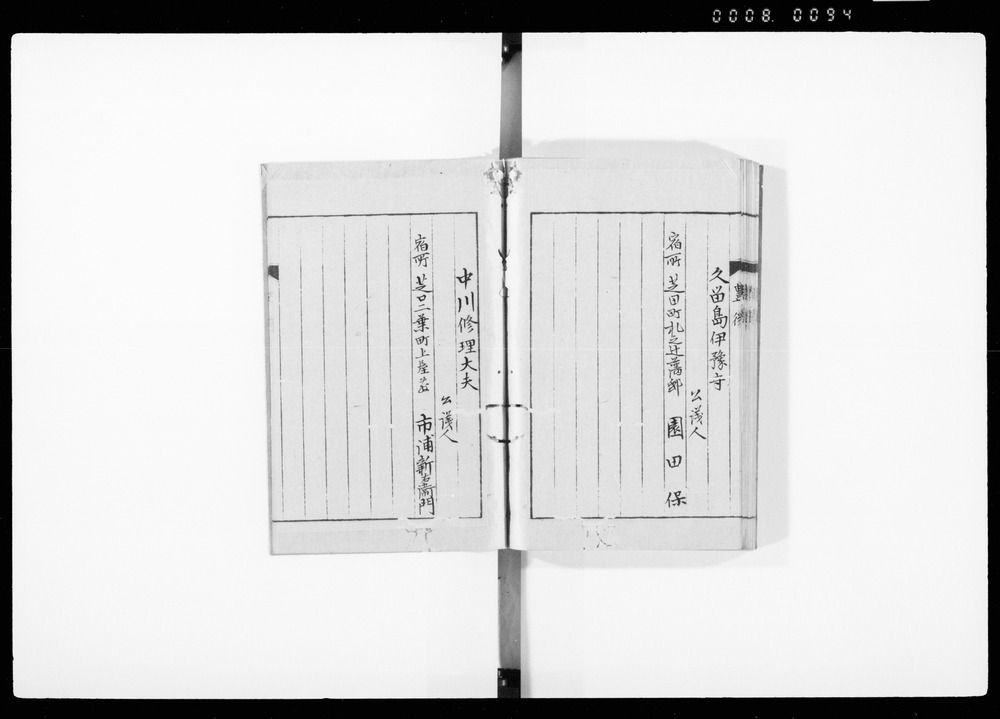 0008. 0094
豊後
久留島伊豫守
公議人
宿所 芝田町札之辻藩邸 園田保
中川修理大夫
公議人
宿所 芝口二葉町上屋敷 市浦新右衛門